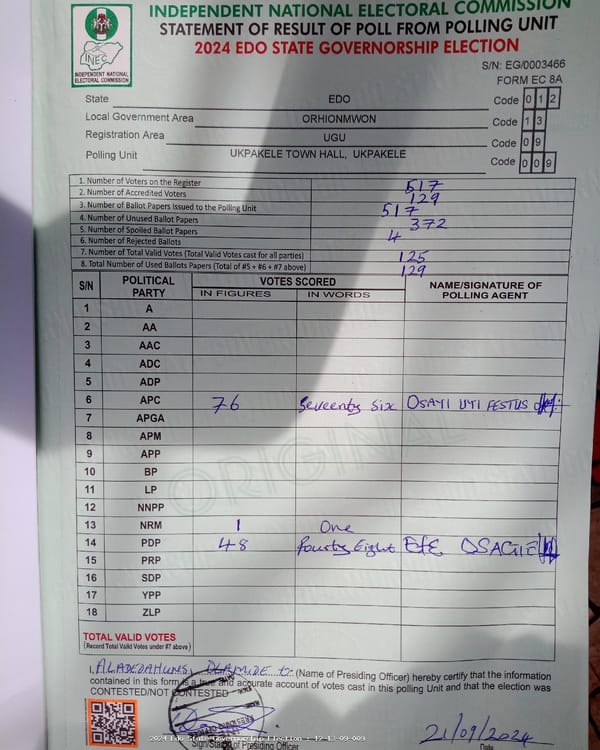 INDEPENDENT NATIONAL ELECTORAL COMMISSION
STATEMENT OF RESULT OF POLL FROM POLLING UNIT
2024 EDO STATE GOVERNORSHIP ELECTION
INEC
INDEPENDENT NATIONAL ELECTORAL COMMISSION
S/N: EG/0003466
FORM EC 8A
State EDO Code 0 1 2
Local Government Area ORHIONMWON Code 1 3
Registration Area UGU Code 0 9
Polling Unit UKPAKELE TOWN HALL, UKPAKELE Code 0 0 9
1. Number of Voters on the Register 517
2. Number of Accredited Voters 129
3. Number of Ballot Papers Issued to the Polling Unit 517
4. Number of Unused Ballot Papers 372
5. Number of Spoiled Ballot Papers 4
6. Number of Rejected Ballots
7. Number of Total Valid Votes (Total Valid Votes cast for all parties) 125
8. Total Number of Used Ballots Papers (Total of #5 + #6 + #7 above) 129
S/N POLITICAL PARTY VOTES SCORED NAME/SIGNATURE OF POLLING AGENT
IN FIGURES IN WORDS
1 A
2 AA
3 AAC
4 ADC
5 ADP
6 APC 76 Seventy six OSAYI UYI FESTUS
7 APGA
8 APM
9 APP
10 BP
11 LP
12 NNPP
13 NRM 1 One
14 PDP 48 fourty Eight EfE OSAGIE
15 PRP
16 SDP
17 YPP
18 ZLP
ORIGINAL
TOTAL VALID VOTES
(Record Total Valid Votes under #7 above)
I, (Name of Presiding Officer) hereby certify that the information
contained in this form is a true and accurate account of votes cast in this polling Unit and that the election was
CONTESTED/NOT CONTESTED
21/09/2024
2024 Edo State Governorship Election - 12-13-09-009
Sign/Stamp of Presiding Officer Date